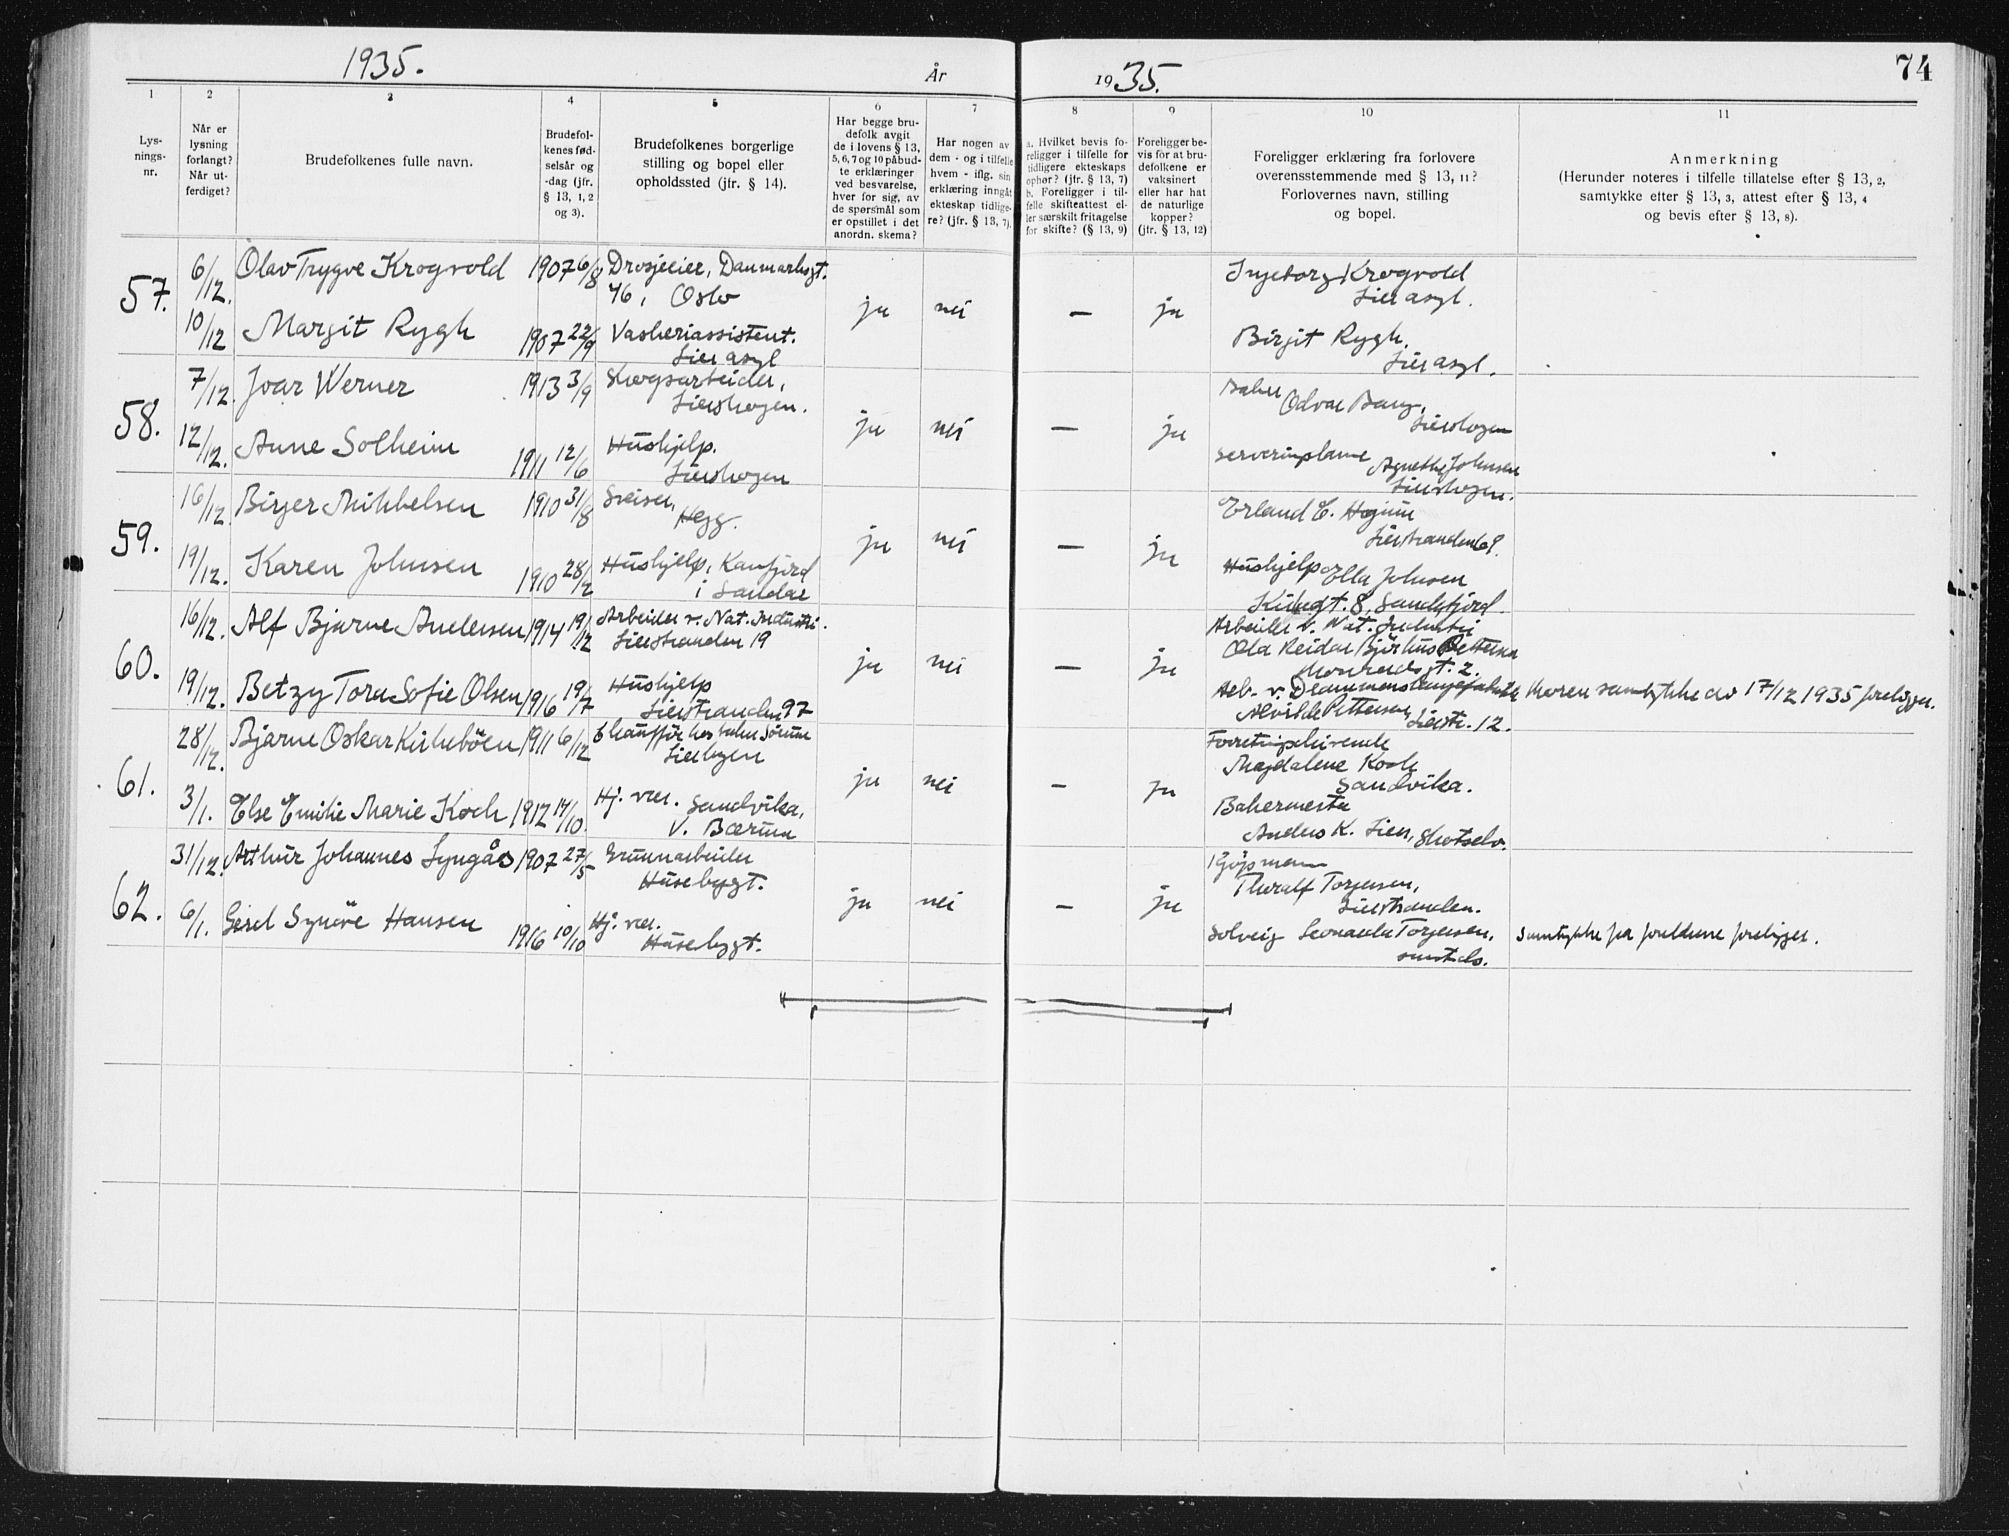 1935.
År
1935.
74
1
2
3
4
5
6
7
8
9
10
11
Lys-
nings-
nr.
Når er
lysning
forlangt?
Når ut-
ferdiget?
Brudefolkenes fulle navn.
Brudefol-
kenes fød-
selsår og
-dag (jfr.
§ 13, 1, 2
og 3).
Brudefolkenes borgerlige
stilling og bopel eller
opholdssted (jfr. § 14).
Har begge bru-
defolk avgit
de i lovens § 13,
5, 6, 7 og 10 påbud-
te erklæringer
ved besvarelse,
hver for sig, av
de spørsmål som
er opstillet i det
anordn. skema?
Har nogen av
dem - og i tilfelle
hvem - iflg. sin
erklæring inngåt
ekteskap tidlige-
re? (jfr. § 13, 7).
a. Hvilket bevis fo-
religger i tilfelle for
tidligere ekteskaps
ophør? (jfr. § 13, 7)
b. Foreligger i til-
felle skifteattest el-
ler særskilt fritagelse
for skifte? (§ 13, 9)
Foreligger be-
vis for at bru-
defolkene er
vaksinert
eller har hat
de naturlige
kopper?
(jfr. § 13, 12)
Foreligger erklæring fra forlovere
overensstemmende med § 13, 11?
Forlovernes navn, stilling
og bopel.
Anmerkning
(Herunder noteres i tilfelle tillatelse efter § 13, 2,
samtykke efter § 13, 3, attest efter § 13, 4
og bevis efter § 13, 8).
57.
6/12.
Olav Trygve Krogvold
1907 6/8
Drosjeeier, Danmarksgt.
46, Oslo
10/12
Margit Rygh
1907 22/9
Vaskeriassistent.
Lier asyl
ja
nei
—
ja
Ingeborg Krogvold
Lier asyl.
Birgit Rygh.
Lier asyl.
58.
7/12.
Joar Werner
1913 3/9
Skogsarbeider,
Lierskogen.
12/12.
Anne Solheim
1911 12/6
Hushjelp.
Lierskogen
ja
nei
—
ja
Baker
Odvar Bang,
Lierskogen
Agnethe Johnsen
Lierskogen.
59.
16/12.
Birger Mikkelsen
1910 31/8
Sveiser,
Hegg.
19/12.
Karen Johnsen
1910 28/2
Hushjelp,
i Sandar
ja
nei
—
ja
Erland E.
Lierstranden 69.
Hushjelp Ella Johnsen
8, Sandefjord.
60.
16/12.
Alf Bjarne Andersen
1914 19/12
Arbeider v. Nat. Industri.
Lierstranden 19
19/12.
Betzy Tora Sofie Olsen
1916 19/7
Hushjelp
Lierstranden 97
ja
nei
—
ja
Arbeider v. Nat. Industri
Ola Reidar Bjørhus Pettersen
2.
Arb. v. Drammens
Alvilde Pettersen, Lierstr. 12.
Moren samtykke av 17/12 1935 foreligger.
61.
28/12.
Bjarne Oskar Kirkebøen
1911 6/12
Chauffør hos
Lierbyen
3/1.
Else Emilie Marie Koch
1912 17/10
Hj. vær. Sandvika,
V. Bærum
ja
nei
—
ja
Forretningsdrivende
Magdalene Koch
Sandvika.
Bakermester
Anders K. Lien, Skotselv.
62.
31/12.
Arthur Johannes Lyngås
1907 27/5
Grunnarbeider
Husebygt.
6/1.
Gerd Synöve Hansen
1916 10/10
Hj. vær.
Husebygt.
ja
nei
—
ja
Kjøpmann
Thoralf Torjesen,
Lierstranden.
Solveig Leonarda Torjesen,
smstds.
Samtykke fra foreldrene foreligger.